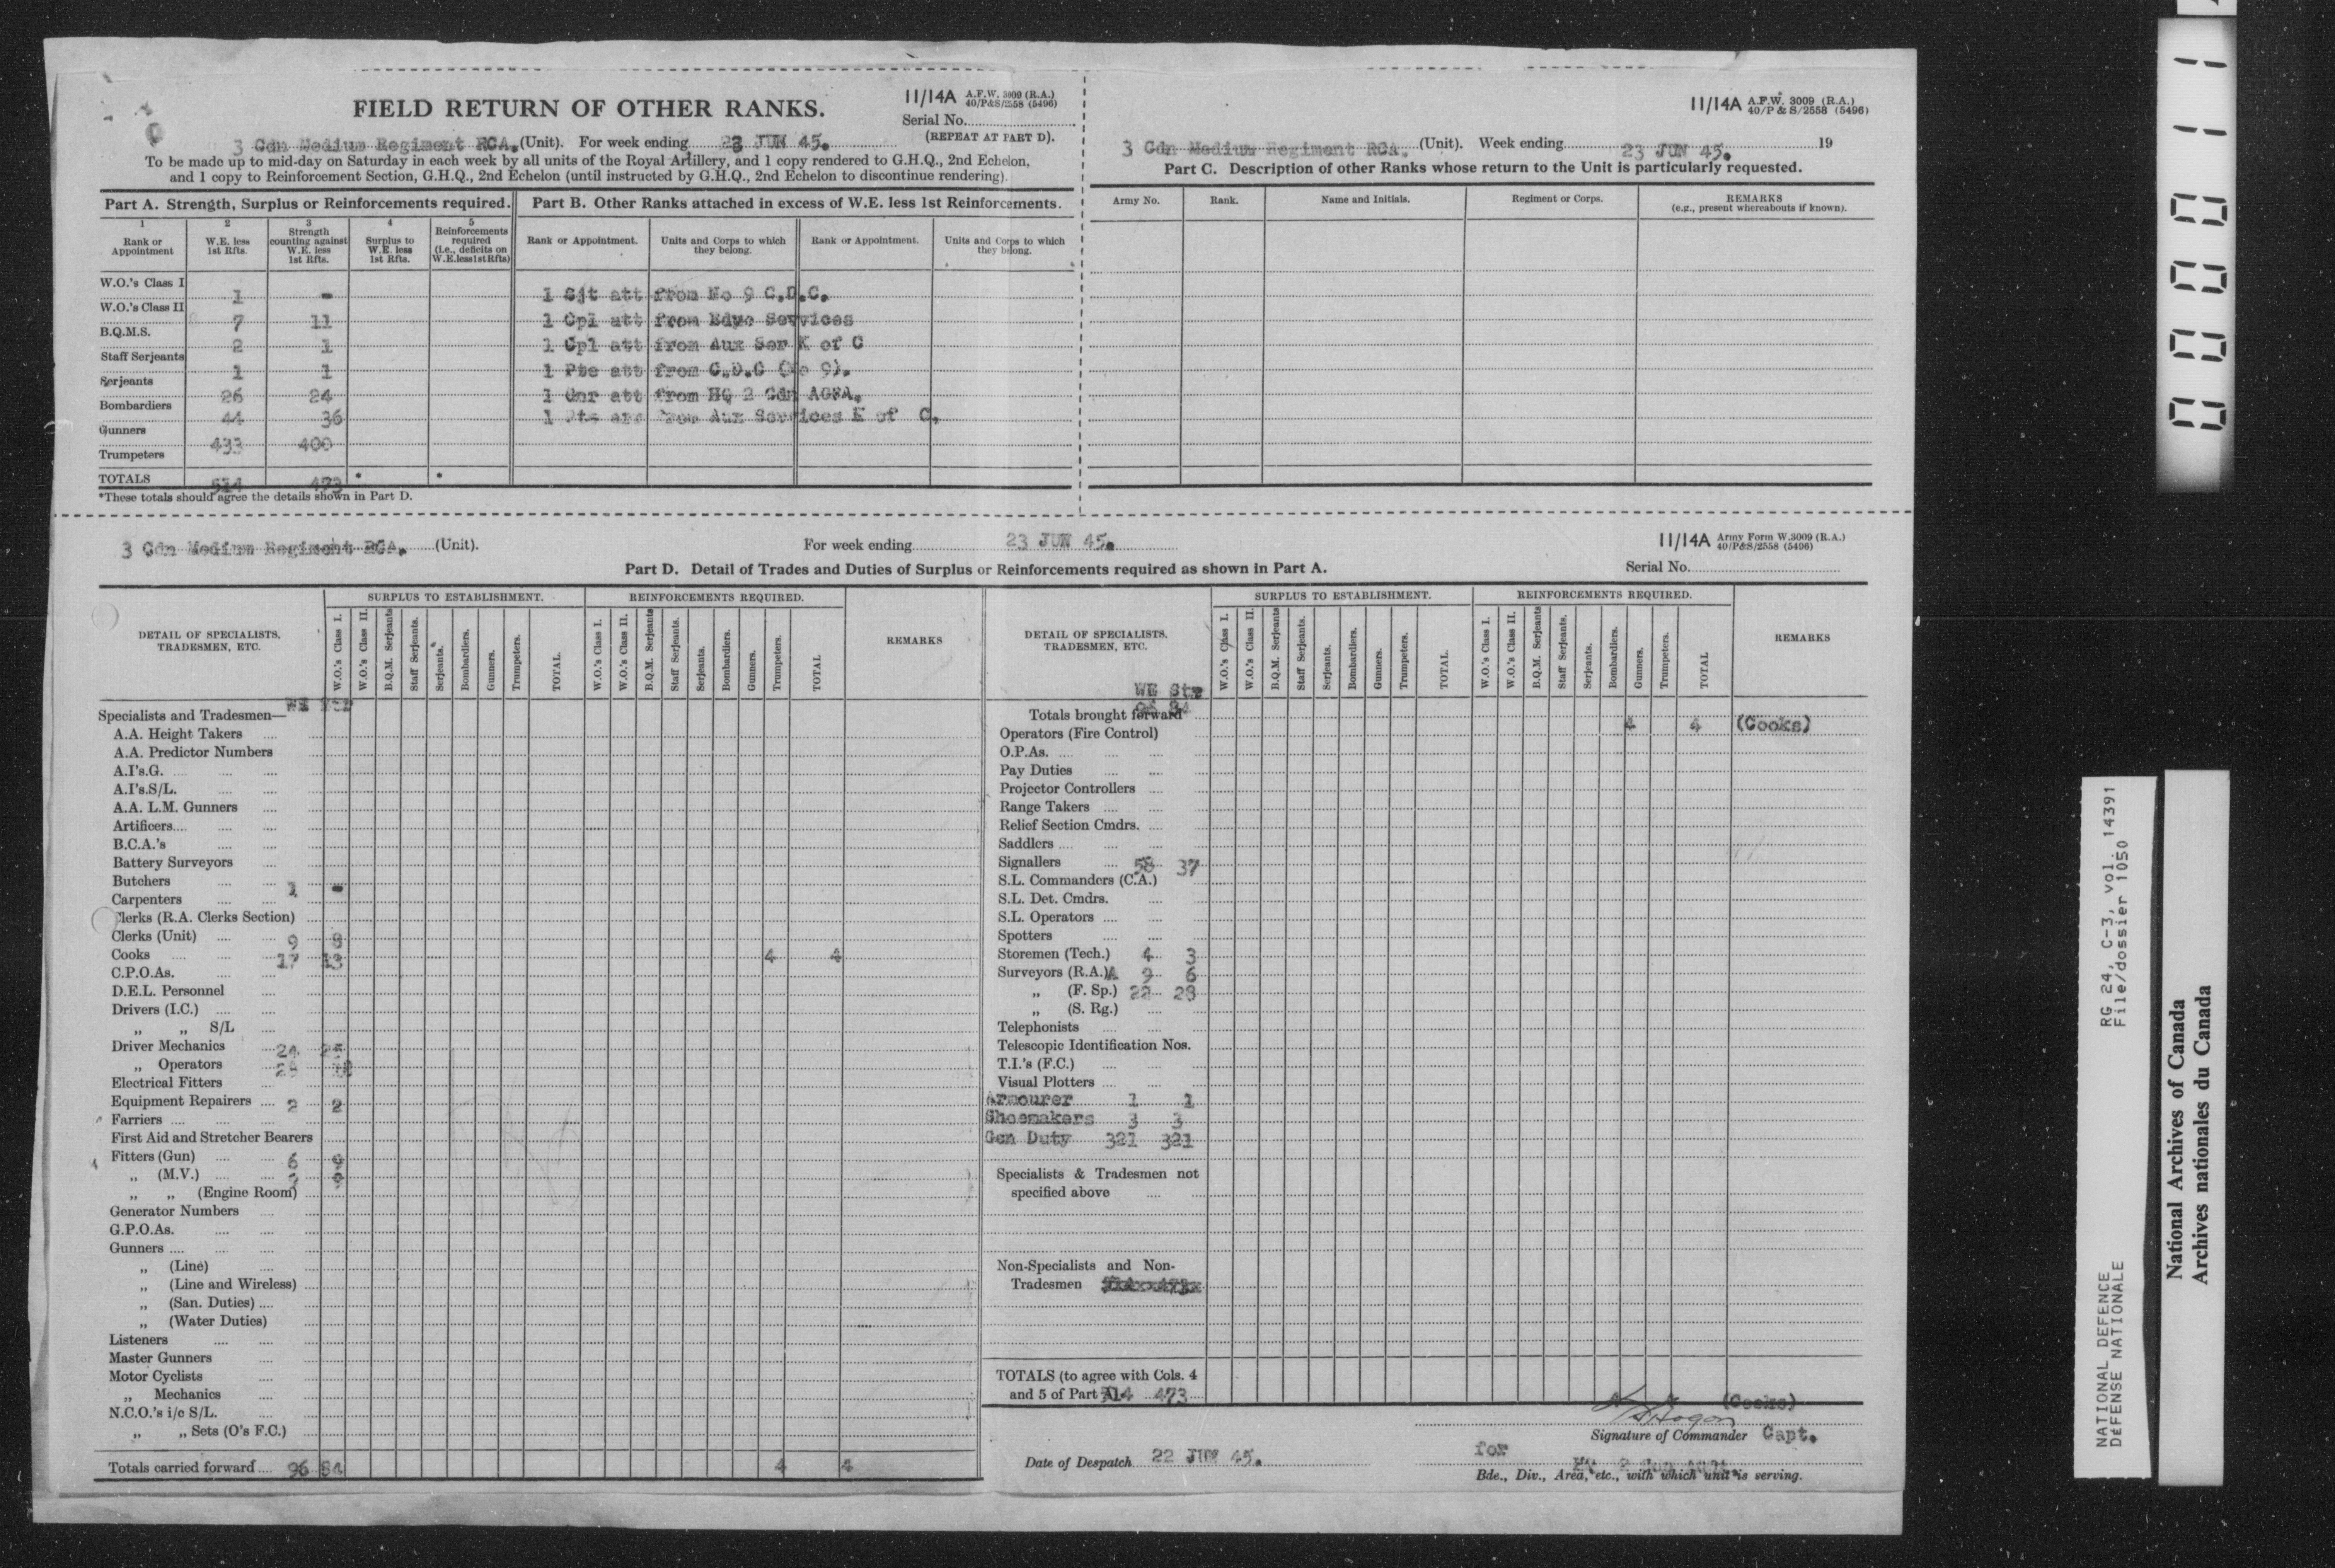 FIELD RETURN OF OTHER RANKS.
11/14A A.F.W. 3009 (R.A.)
40/P&S/2558 (5496)
Serial No.
(REPEAT AT PART D).
3 Cdn Medium Regiment RCA. (Unit). For week ending 23 JUN 45.
To be made up to mid-day on Saturday in each week by all units of the Royal Artillery, and 1 copy rendered to G.H.Q., 2nd Echelon,
and 1 copy to Reinforcement Section, G.H.Q., 2nd Echelon (until instructed by G.H.Q., 2nd Echelon to discontinue rendering).
Part A. Strength, Surplus or Reinforcements required.
1 2 3 4 5
Rank or Appointment
W.E. less 1st Rfts.
Strength counting against W.E. less 1st Rfts.
Surplus to W.E. less 1st Rfts.
Reinforcements required (i.e., deficits on W.E. less 1st Rfts)
W.O.'s Class I 1 -
W.O.'s Class II 7 11
B.Q.M.S. 2 1
Staff Serjeants 1 1
Serjeants 26 24
Bombardiers 44 36
Gunners 433 400
Trumpeters
TOTALS 514 473 * *
*These totals should agree the details shown in Part D.
Part B. Other Ranks attached in excess of W.E. less 1st Reinforcements.
Rank or Appointment. Units and Corps to which they belong. Rank or Appointment. Units and Corps to which they belong.
1 Sjt att from No 9 C.D.C.
1 Cpl att from Educ Services
1 Cpl att from Aux Ser K of C
1 Pte att from C.D.C (No 9).
1 Gnr att from HQ 2 Cdn AGRA.
1 from Aux Services K of C.
11/14A A.F.W. 3009 (R.A.)
40/P & S/2558 (5496)
3 Cdn Medium Regiment RCA. (Unit). Week ending 23 JUN 45. 19
Part C. Description of other Ranks whose return to the Unit is particularly requested.
Army No. Rank. Name and Initials. Regiment or Corps. REMARKS
(e.g., present whereabouts if known).
3 Cdn Medium Regiment RCA. (Unit). For week ending 23 JUN 45.
11/14A Army Form W.3009 (R.A.)
40/P&S/2558 (5496)
Serial No.
Part D. Detail of Trades and Duties of Surplus or Reinforcements required as shown in Part A.
DETAIL OF SPECIALISTS, TRADESMEN, ETC.
SURPLUS TO ESTABLISHMENT.
W.O.'s Class I. W.O.'s Class II. B.Q.M. Serjeants Staff Serjeants. Serjeants. Bombardiers. Gunners. Trumpeters. TOTAL.
REINFORCEMENTS REQUIRED.
W.O.'s Class I. W.O.'s Class II. B.Q.M. Serjeants Staff Serjeants. Serjeants. Bombardiers. Gunners. Trumpeters. TOTAL
REMARKS
Specialists and Tradesmen— WE
A.A. Height Takers
A.A. Predictor Numbers
A.I's.G.
A.I's.S/L.
A.A. L.M. Gunners
Artificers
B.C.A.'s
Battery Surveyors
Butchers 1 -
Carpenters
Clerks (R.A. Clerks Section)
Clerks (Unit) 9 8
Cooks 17 13 4 4
C.P.O.As.
D.E.L. Personnel
Drivers (I.C.)
„ „ S/L
Driver Mechanics 24
„ Operators
Electrical Fitters
Equipment Repairers 2 2
Farriers
First Aid and Stretcher Bearers
Fitters (Gun) 6
„ (M.V.)
„ „ (Engine Room)
Generator Numbers
G.P.O.As.
Gunners
„ (Line)
„ (Line and Wireless)
„ (San. Duties)
„ (Water Duties)
Listeners
Master Gunners
Motor Cyclists
„ Mechanics
N.C.O.'s i/c S/L.
„ „ Sets (O's F.C.)
Totals carried forward 96 84 4 4
DETAIL OF SPECIALISTS, TRADESMEN, ETC.
SURPLUS TO ESTABLISHMENT.
W.O.'s Class I. W.O.'s Class II. B.Q.M. Serjeants Staff Serjeants. Serjeants. Bombardiers. Gunners. Trumpeters. TOTAL.
REINFORCEMENTS REQUIRED.
W.O.'s Class I. W.O.'s Class II. B.Q.M. Serjeants Staff Serjeants. Serjeants. Bombardiers. Gunners. Trumpeters. TOTAL
REMARKS
WE Str
Totals brought forward 96 84 4 4 (Cooks)
Operators (Fire Control)
O.P.As.
Pay Duties
Projector Controllers
Range Takers
Relief Section Cmdrs.
Saddlers
Signallers 58 37
S.L. Commanders (C.A.)
S.L. Det. Cmdrs.
S.L. Operators
Spotters
Storemen (Tech.) 4 3
Surveyors (R.A.)A 9 6
„ (F. Sp.) 22
„ (S. Rg.)
Telephonists
Telescopic Identification Nos.
T.I.'s (F.C.)
Visual Plotters
Armourer 1 1
Shoemakers 3 3
Gen Duty 321 321
Specialists & Tradesmen not
specified above
Non-Specialists and Non-
Tradesmen
TOTALS (to agree with Cols. 4
and 5 of Part A). 514 473 (Cooks)
Signature of Commander Capt.
Date of Despatch 22 JUN 45.
for
Bde., Div., Area, etc., with which unit is serving.
00011
RG 24, C-3, vol. 14391
File/dossier 1050
NATIONAL DEFENCE
DÉFENSE NATIONALE
National Archives of Canada
Archives nationales du Canada